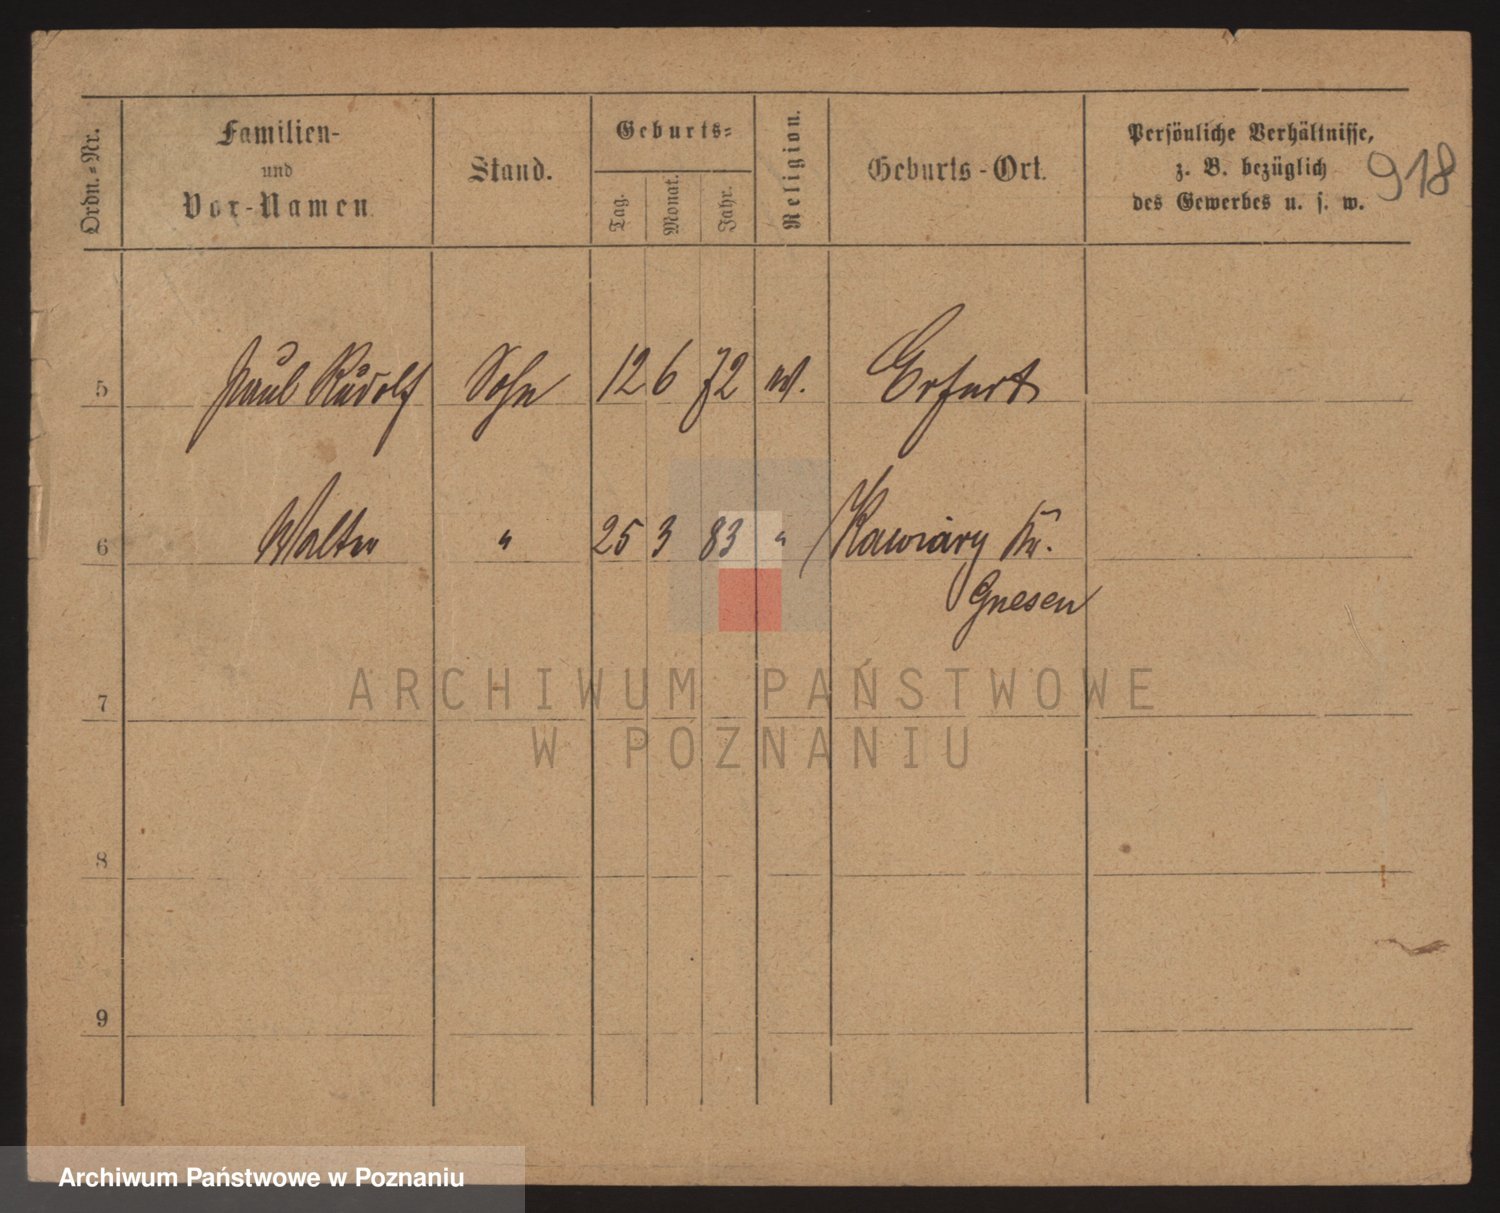 Ordn.-Nr.
Familien-
und
Vor-Namen.
Stand.
Geburts-
Tag.
Monat.
Jahr.
Religion.
Geburts-Ort.
Persönliche Verhältnisse,
z. B. bezüglich
des Gewerbes u. s. w.
918
5 Paul Rudolf Sohn 12 6 72 Erfurt
6 Walter " 25 3 83 " Kawiary Kr.
Gnesen
7
ARCHIWUM PAŃSTWOWE
W POZNANIU
8
9
Archiwum Państwowe w Poznaniu